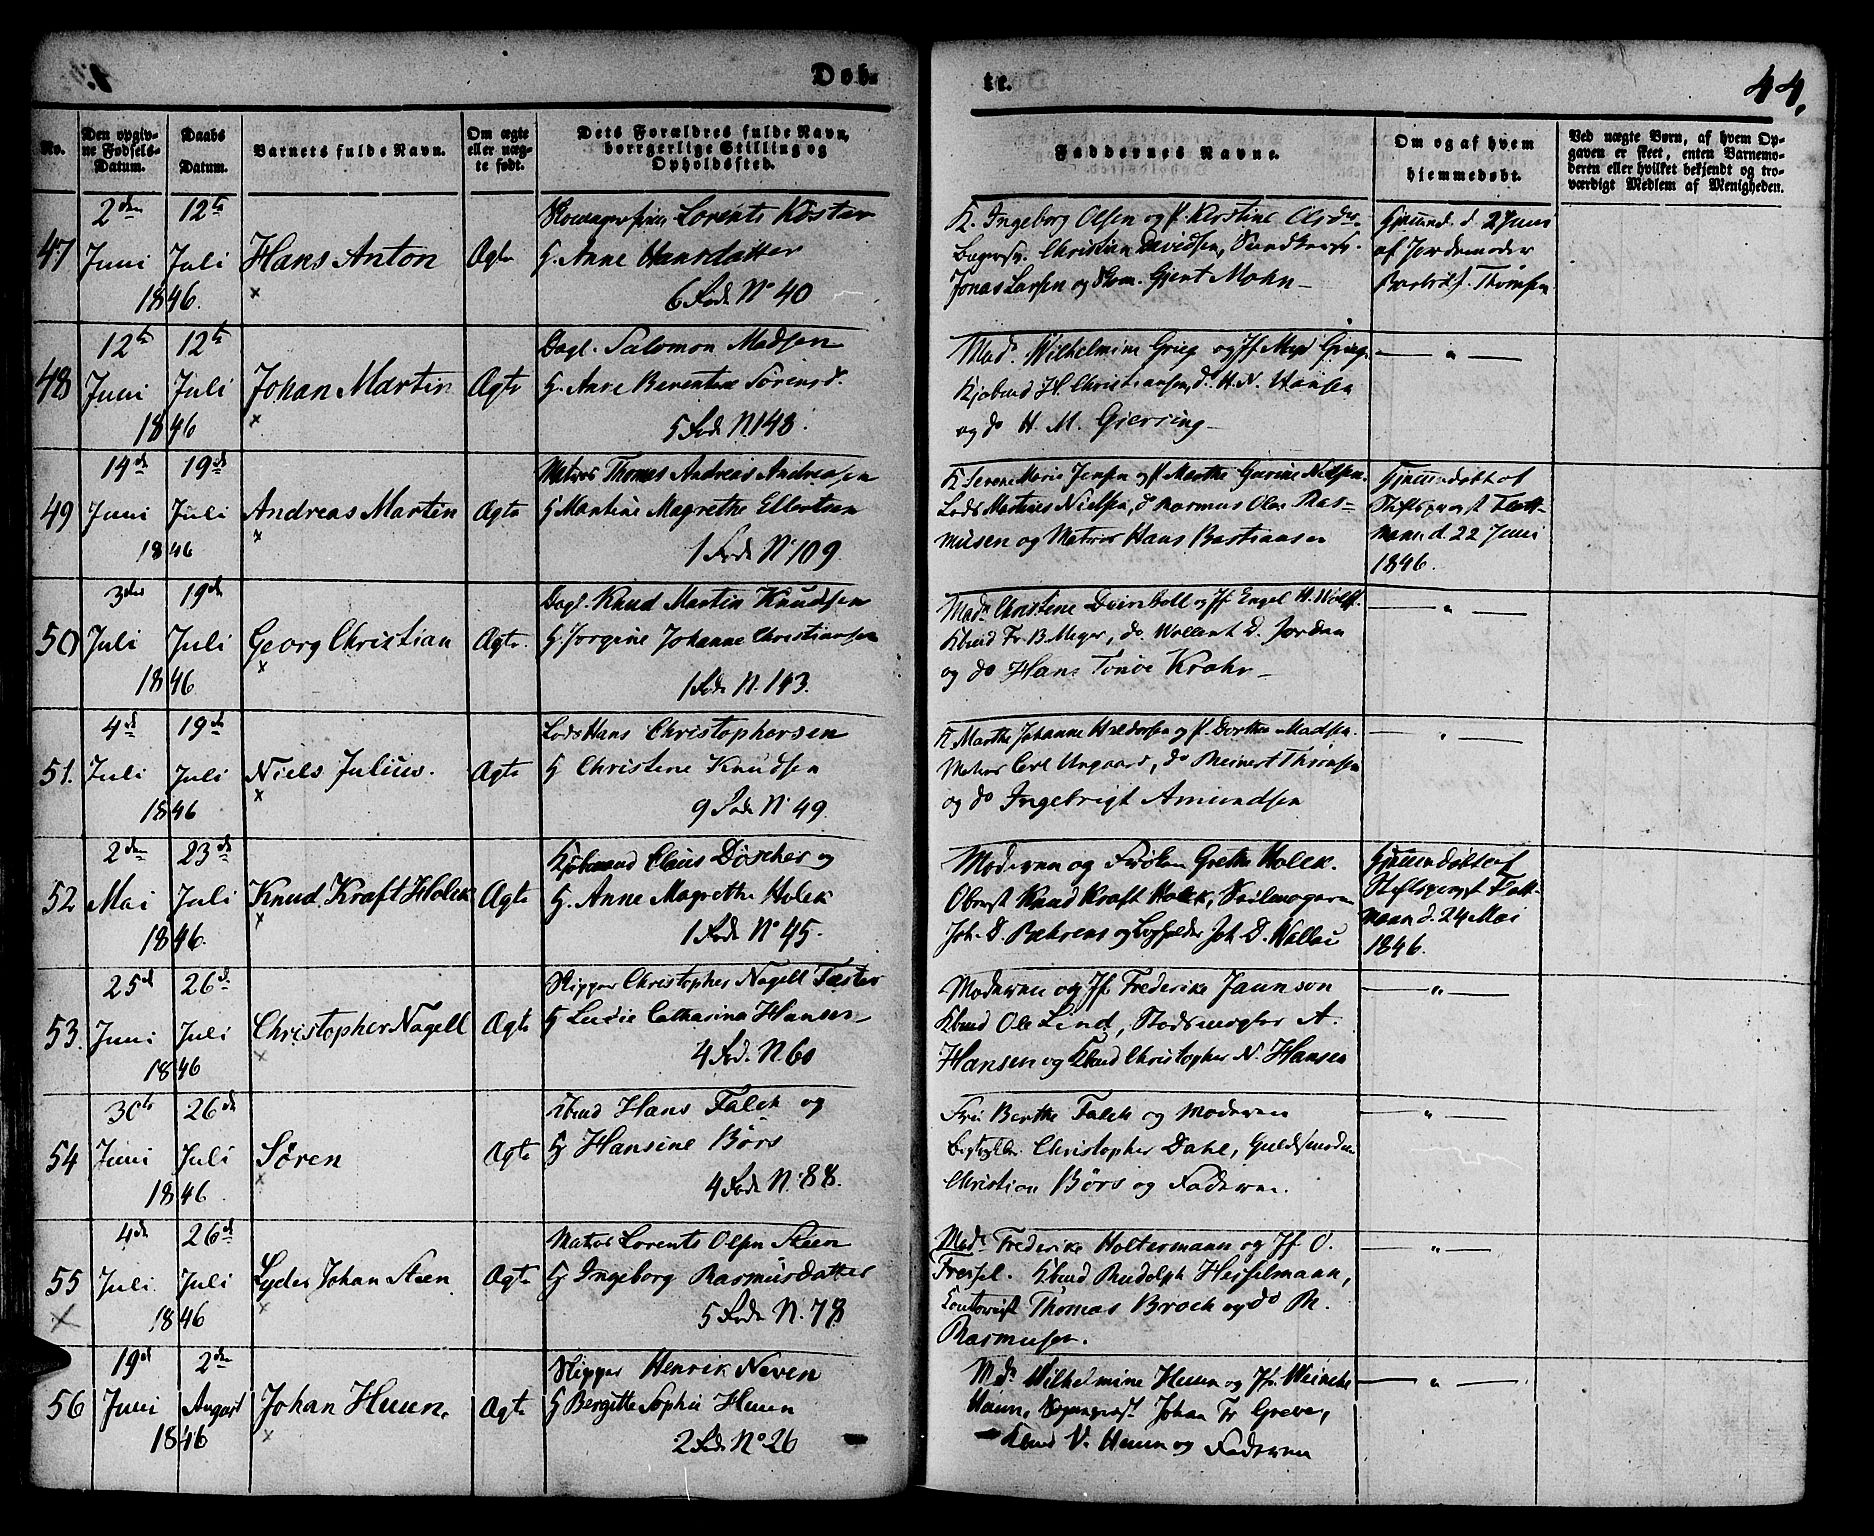 Døb-
te.
44.
No.
Den opgiv-
ne Fødsels-
Datum.
Daabs
Datum.
Barnets fulde Navn.
Om ægte
eller uæg-
te født.
Dets Forældres fulde Navn,
borgerlige Stilling og
Opholdssted.
Faddernes Navne.
Om og af hvem
hjemmedøbt.
Ved uægte Børn, af hvem Op-
gaven er skeet, enten Barnemo-
deren eller hvilket bekjendt og tro-
værdigt Medlem af Menigheden.
47
2den Juni 1846.
12te Juli
Hans Anton
Ægte
Lorents Köster
H. Anne Hansdatter
6 Fød. No 40
K. Ingeborg Olsen og P. Kerstine
Christian Davidsen,
Jonas Larsen og Gjert Mohn
d. 2 Juni
af Jordemoder
Thomsen
48
12te Juni 1846
12te Juli
Johan Martin
Ægte
Dagl. Salomon Madsen
H. Anne Berentine Sørensd.
5 Fød. N 148.
Mad. Wilhelmine Grieg og Jf. Grieg
Kjøbmd H. Christiansen, do H. N. Hansen
og do H. M. Giersing
49
14de Juni 1846
19de Juli
Andreas Martin
Ægte
Matros Thomas Andreas Andreasen
H Martine Magrethe Ellertsen
1 Fød. No 109.
K Serene Marie Jensen og P. Marthe Gurine Nielsen.
Lods Martinus Nielsen, do Rasmus Olai Ras-
musen og Matros Hans Bastiansen
Hjemmedøbt af
Stiftsprovst
d. 22 Juni
1846.
50
3die Juli 1846
19de Juli
Georg Christian
Ægte.
Dagl. Knud Martin Knudsen
H Jørgine Johanne Christiansen
1 Fød. N. 143.
Mad. Christine Deinboll og Jf. Engel H. Wolff.
Kbmd Fr. B. Meyer, do. Wollert D. Jordan
og do Hans Tonoe Krohn
51.
4de Juli 1846
19de Juli
Niels Julius.
Ægte
Lods Hans Christophersen
H Christine Knudsen
9 Fød. N. 49.
K Marthe Johanne Haldorsen og P. Dorthea Madsen.
Matros Carl Ungaard, do Reinert Thomsen
og do Ingebrigt Amundsen
52
2den Mai 1846.
23de Juli
Knud Kraft Holck
Ægte
Kjøbmand Claus Döscher og
H. Anne Magrethe Holck
1 Fød. No 45.
Moderen og Frøken Grethe Holck.
Oberst Knud Kraft Holck, Seilmager
Joh. D. Behrens og Joh. D. Wallau
Hjemmedøbt af
Stiftsprovst
d. 24 Mai
1846.
53.
25de Juni 1846
26de Juli
Christopher Nagell
Ægte
Skipper Christopher Nagell Taster
H Lucie Catharina Hansen
4 Fød. N. 60
Moderen og Jf. Frederike Jaunson
Kbmd Ole Lind, Stadsmægler A.
Hansen og Kbmd Christopher N. Hansen
54
30te Juni 1846
26de Juli
Søren
Ægte
Kbmd Hans Falck og
H Hansine Börs
4 Fød. N. 88.
Fru Berthe Falck og Moderen
Christopher Dahl, Guldsmed
Christian Börs og Faderen.
55
4de Juli 1846
26de Juli
Lyder Johan Steen
Ægte
Matros Lorents Olsen Steen
H Ingeborg Rasmusdatter
5 Fød. N. 78
Mad. Frederike Holtermann og Jf. O.
Friessel. Kbmd Rudolph Hesselmann,
Contorist Thomas Broch og do R.
Rasmusen.
56
19de Juni 1846
2den August
Johan Huun.
Ægte
Skipper Henrik Neven
H Bergitte Sophie Huun
2 Fød. No 26
Md. Wilhelmine Huun og Jf.
Huun, Johan Fr Greve,
Kbmd V. Huun og Faderen